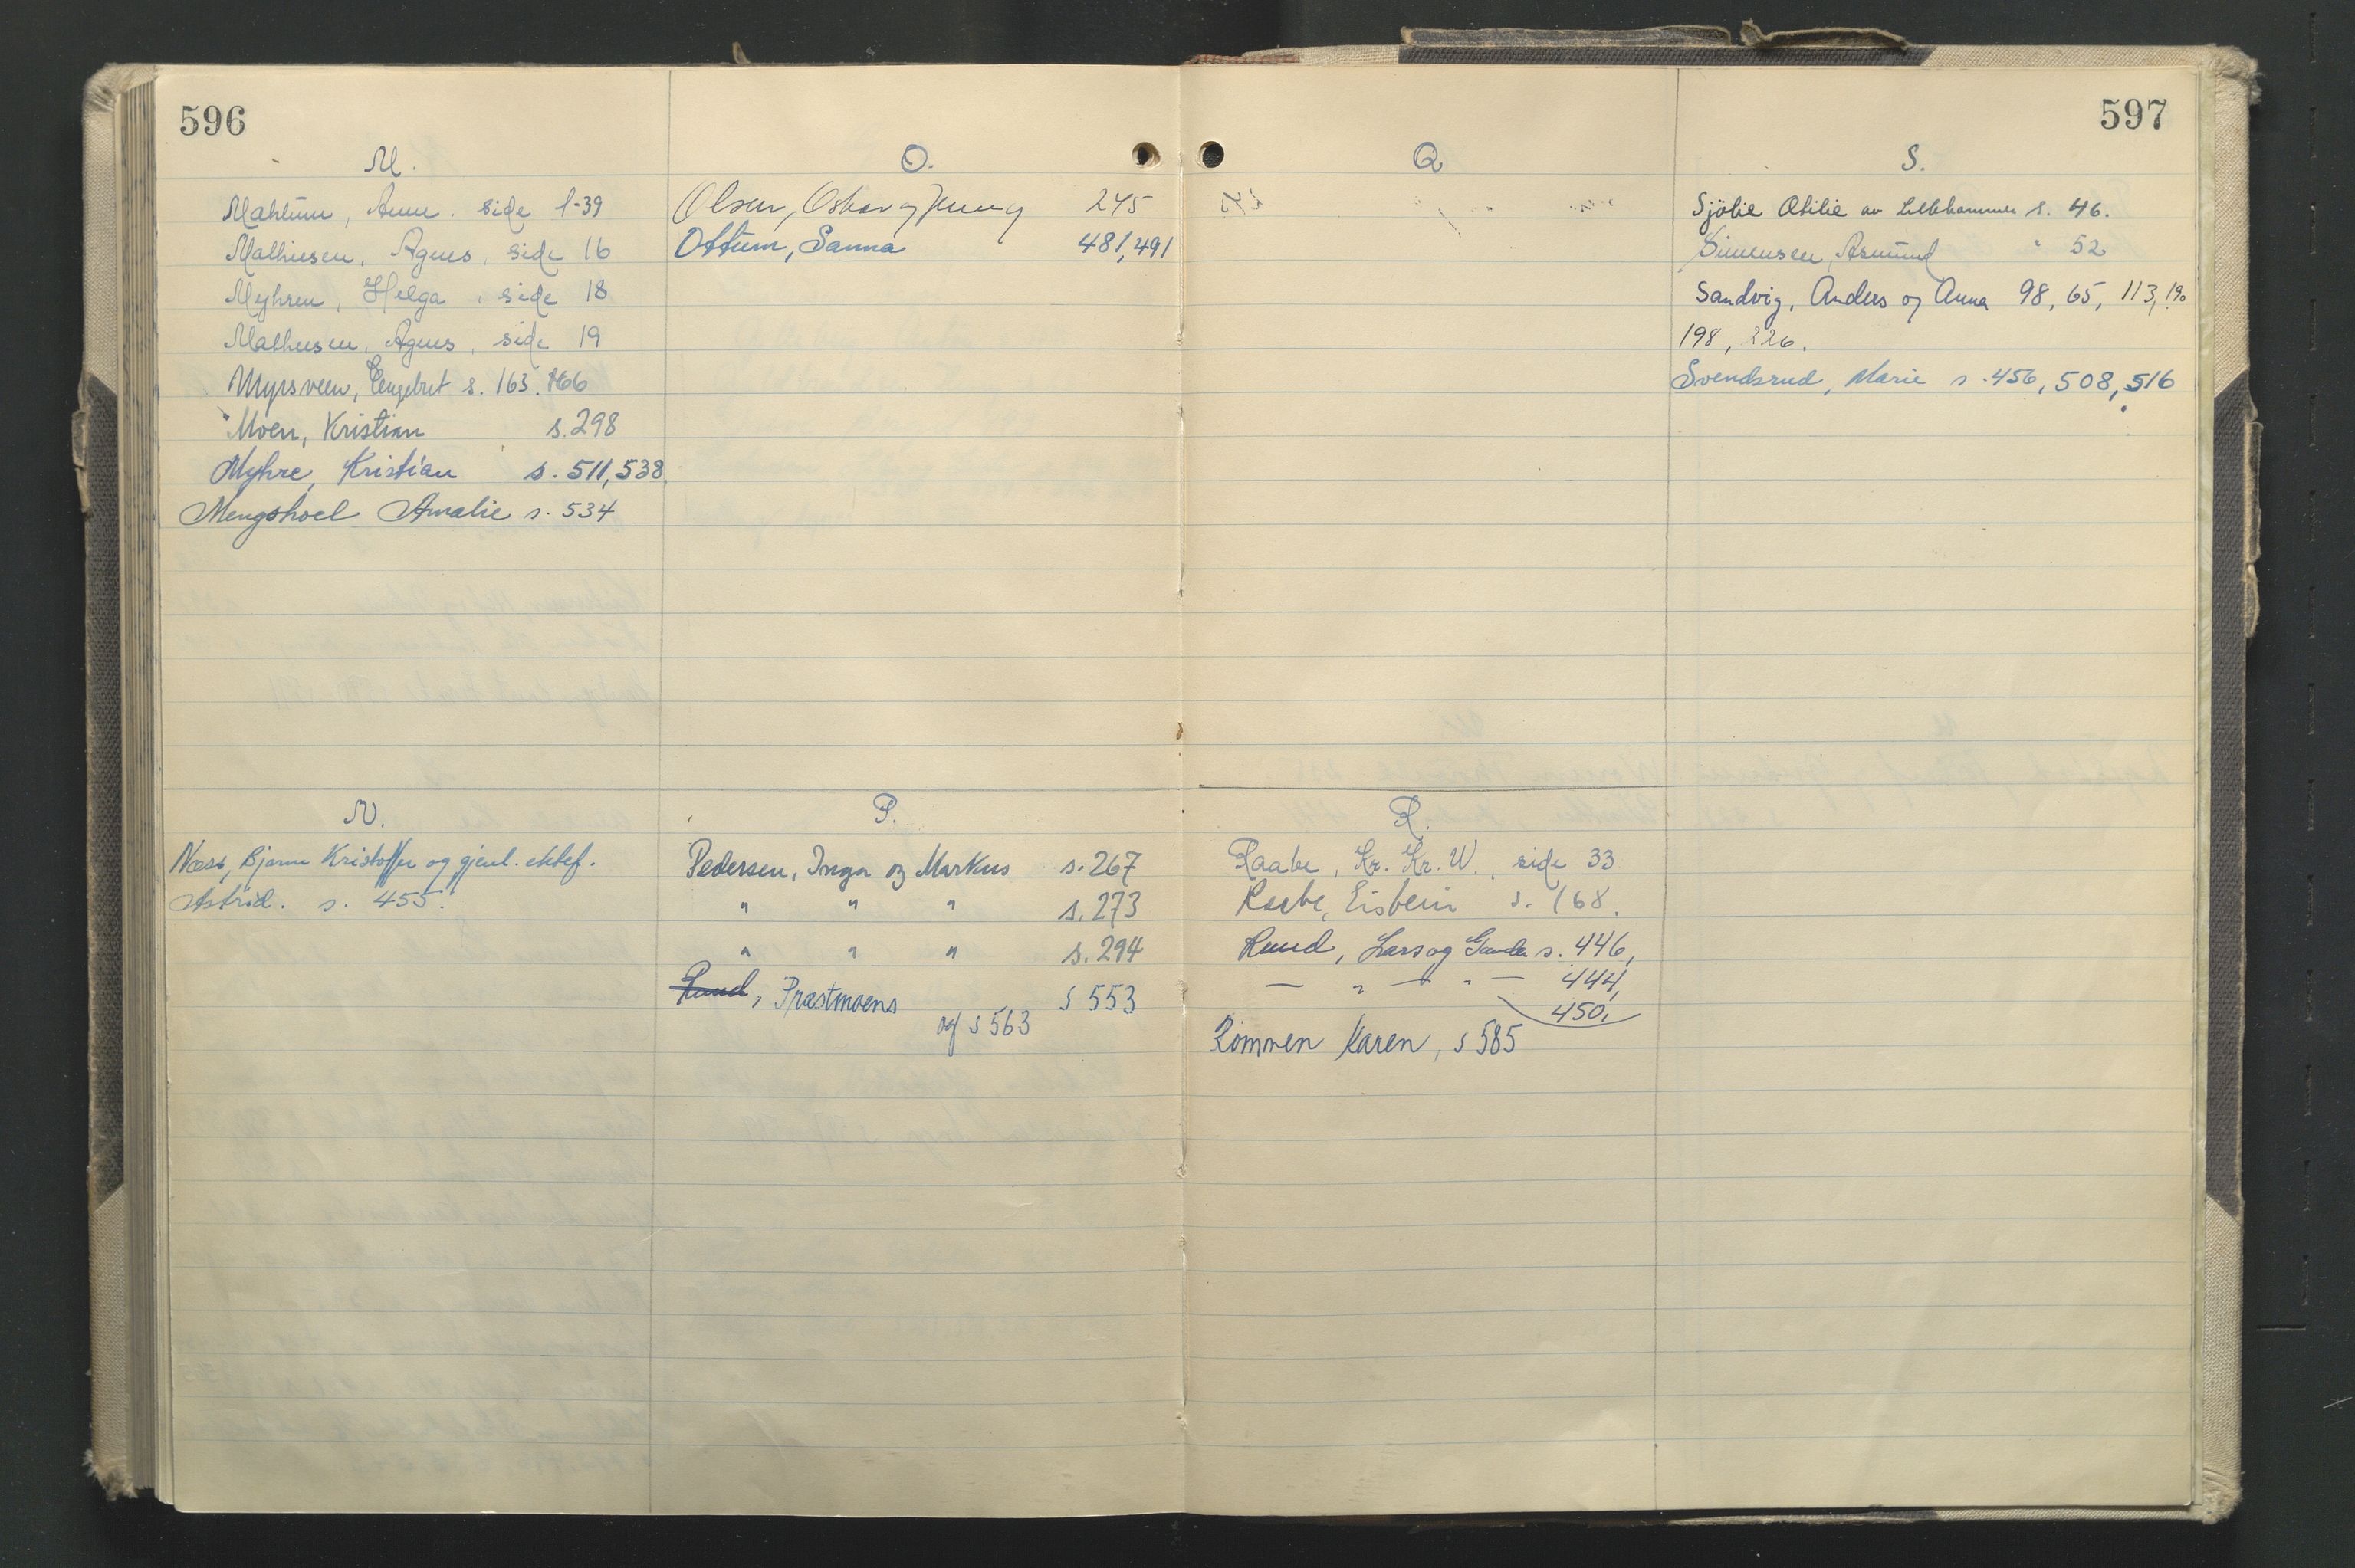 596
M.
Mahlum, Anne. side 1-39
Mathiesen, Agnes, side 16
Myhren, Helga, side 18
Mathiesen, Agnes, side 19
Myrsveen, Engebret s. 163. 166
Moen, Kristian s. 298
Myhre, Kristian s. 511, 538.
Mengshoel Amalie s. 534
N.
Næss, Bjarne Kristoffer og gjenl. ektef.
Astrid. s. 455.
O.
Olsen, Oskar og Jenny 245
Ottum, Sanna 481, 491
P.
Pedersen, Inga og Markus s. 267
" " " s. 273
" " " s. 294
Ruud, Præstmoens s 553
og s 563
597
Q
R.
Raabe, Kr. Kr. W., side 33
Raabe, s. 168.
Ruud, Lars og s. 446,
— " — " — 444,
450,
Rommen Karen, s 585
S.
Sjölie Otilie av Lillehammer s. 46.
Simensen, Asmund " 52
Sandvig, Anders og Anna 98, 65, 113, 190
198, 226.
Svendsrud, Marie s. 456, 508, 516